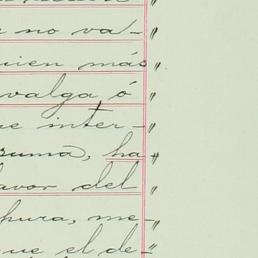 no va-
uien más
valga ó
ue inter-
suma, ha
favor del
pura, me-
que el de-